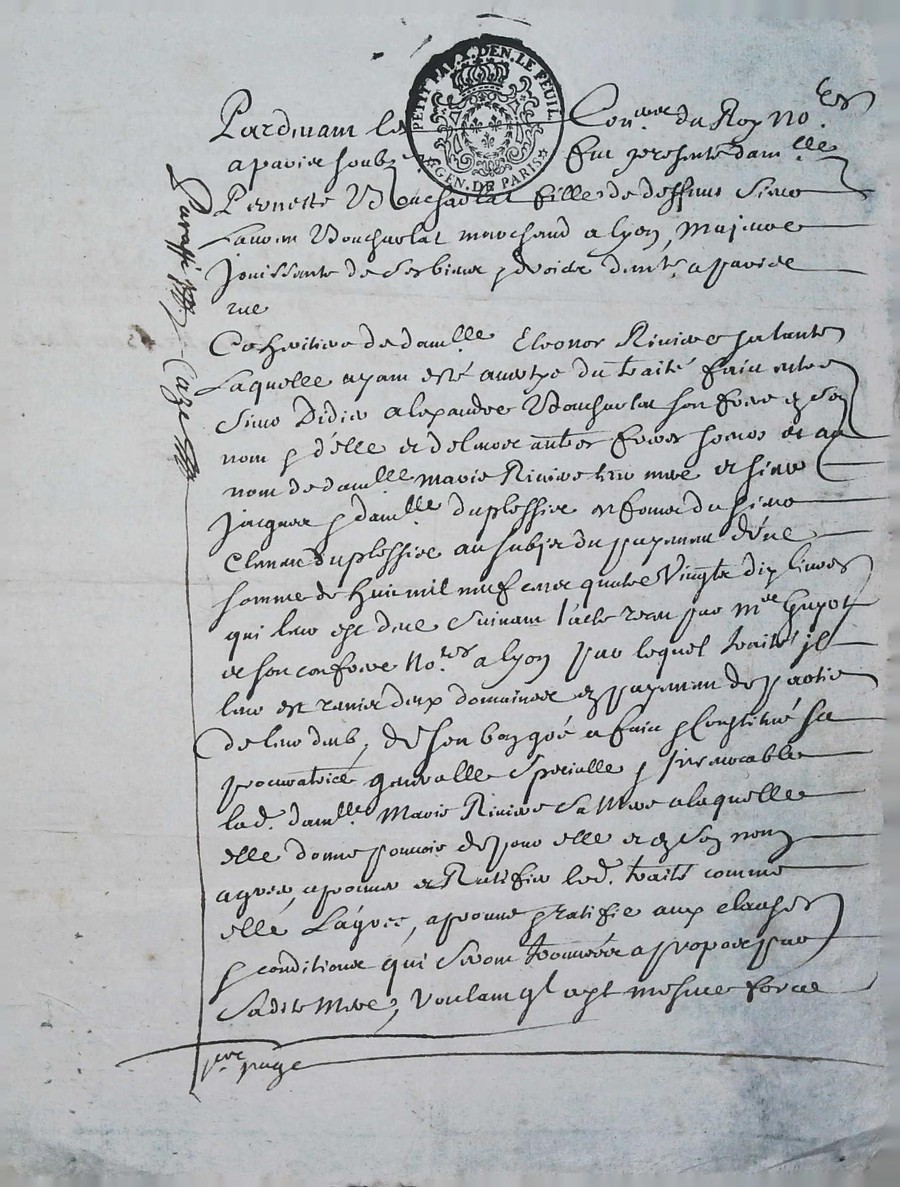 PETIT PAP. X. DEN. LE FEUIL.
GEN. DE PARIS
Pardevant les Con.ers du Roy No.res
a paris soub fut presente dam.lle
Pernette Boucharlat fille de deffunt Sieur
Laurent Boucharlat marchand a Lyon, majeure
Jouissante de ses biens & droits dem.te a paris
rue
Cohéritiere de dam.lle Eleonor Riviere sa tante
Laquelle ayant esté du traité fait entre
Sieur Didier alexandre Boucharlat son frere en son
nom & d'elle et de leurs autres freres soeurs et au
nom de dam.lle marie Riviere leur mere et sieur
Jacques & dam.lle duplessis enfans du sieur
Clement duplessis au subjet du payement d'une
somme de huit mil neuf cens quatre Vingts dix livres
qui leur est deue Suivant l'acte receu par m.e Guyot
et son confrere No.res a Lyon par lequel traité il
leur est deux domaines en payement de partie
de leur deub, de son bon gré a fait & constitué sa
procuratrice generalle specialle & irrevocable
lad. dam.lle Marie Riviere sa Mere a laquelle
elle donne pouvoir de pour elle et en son nom
agréer, aprouver et Ratifier led. traité comme
elle L'agrée, aprouve & ratifie aux clauses
& conditions qui seront trouvées a propos par
Sadite Mere, voulant qu'il ayt mesme force
p.ere page
Paraffé